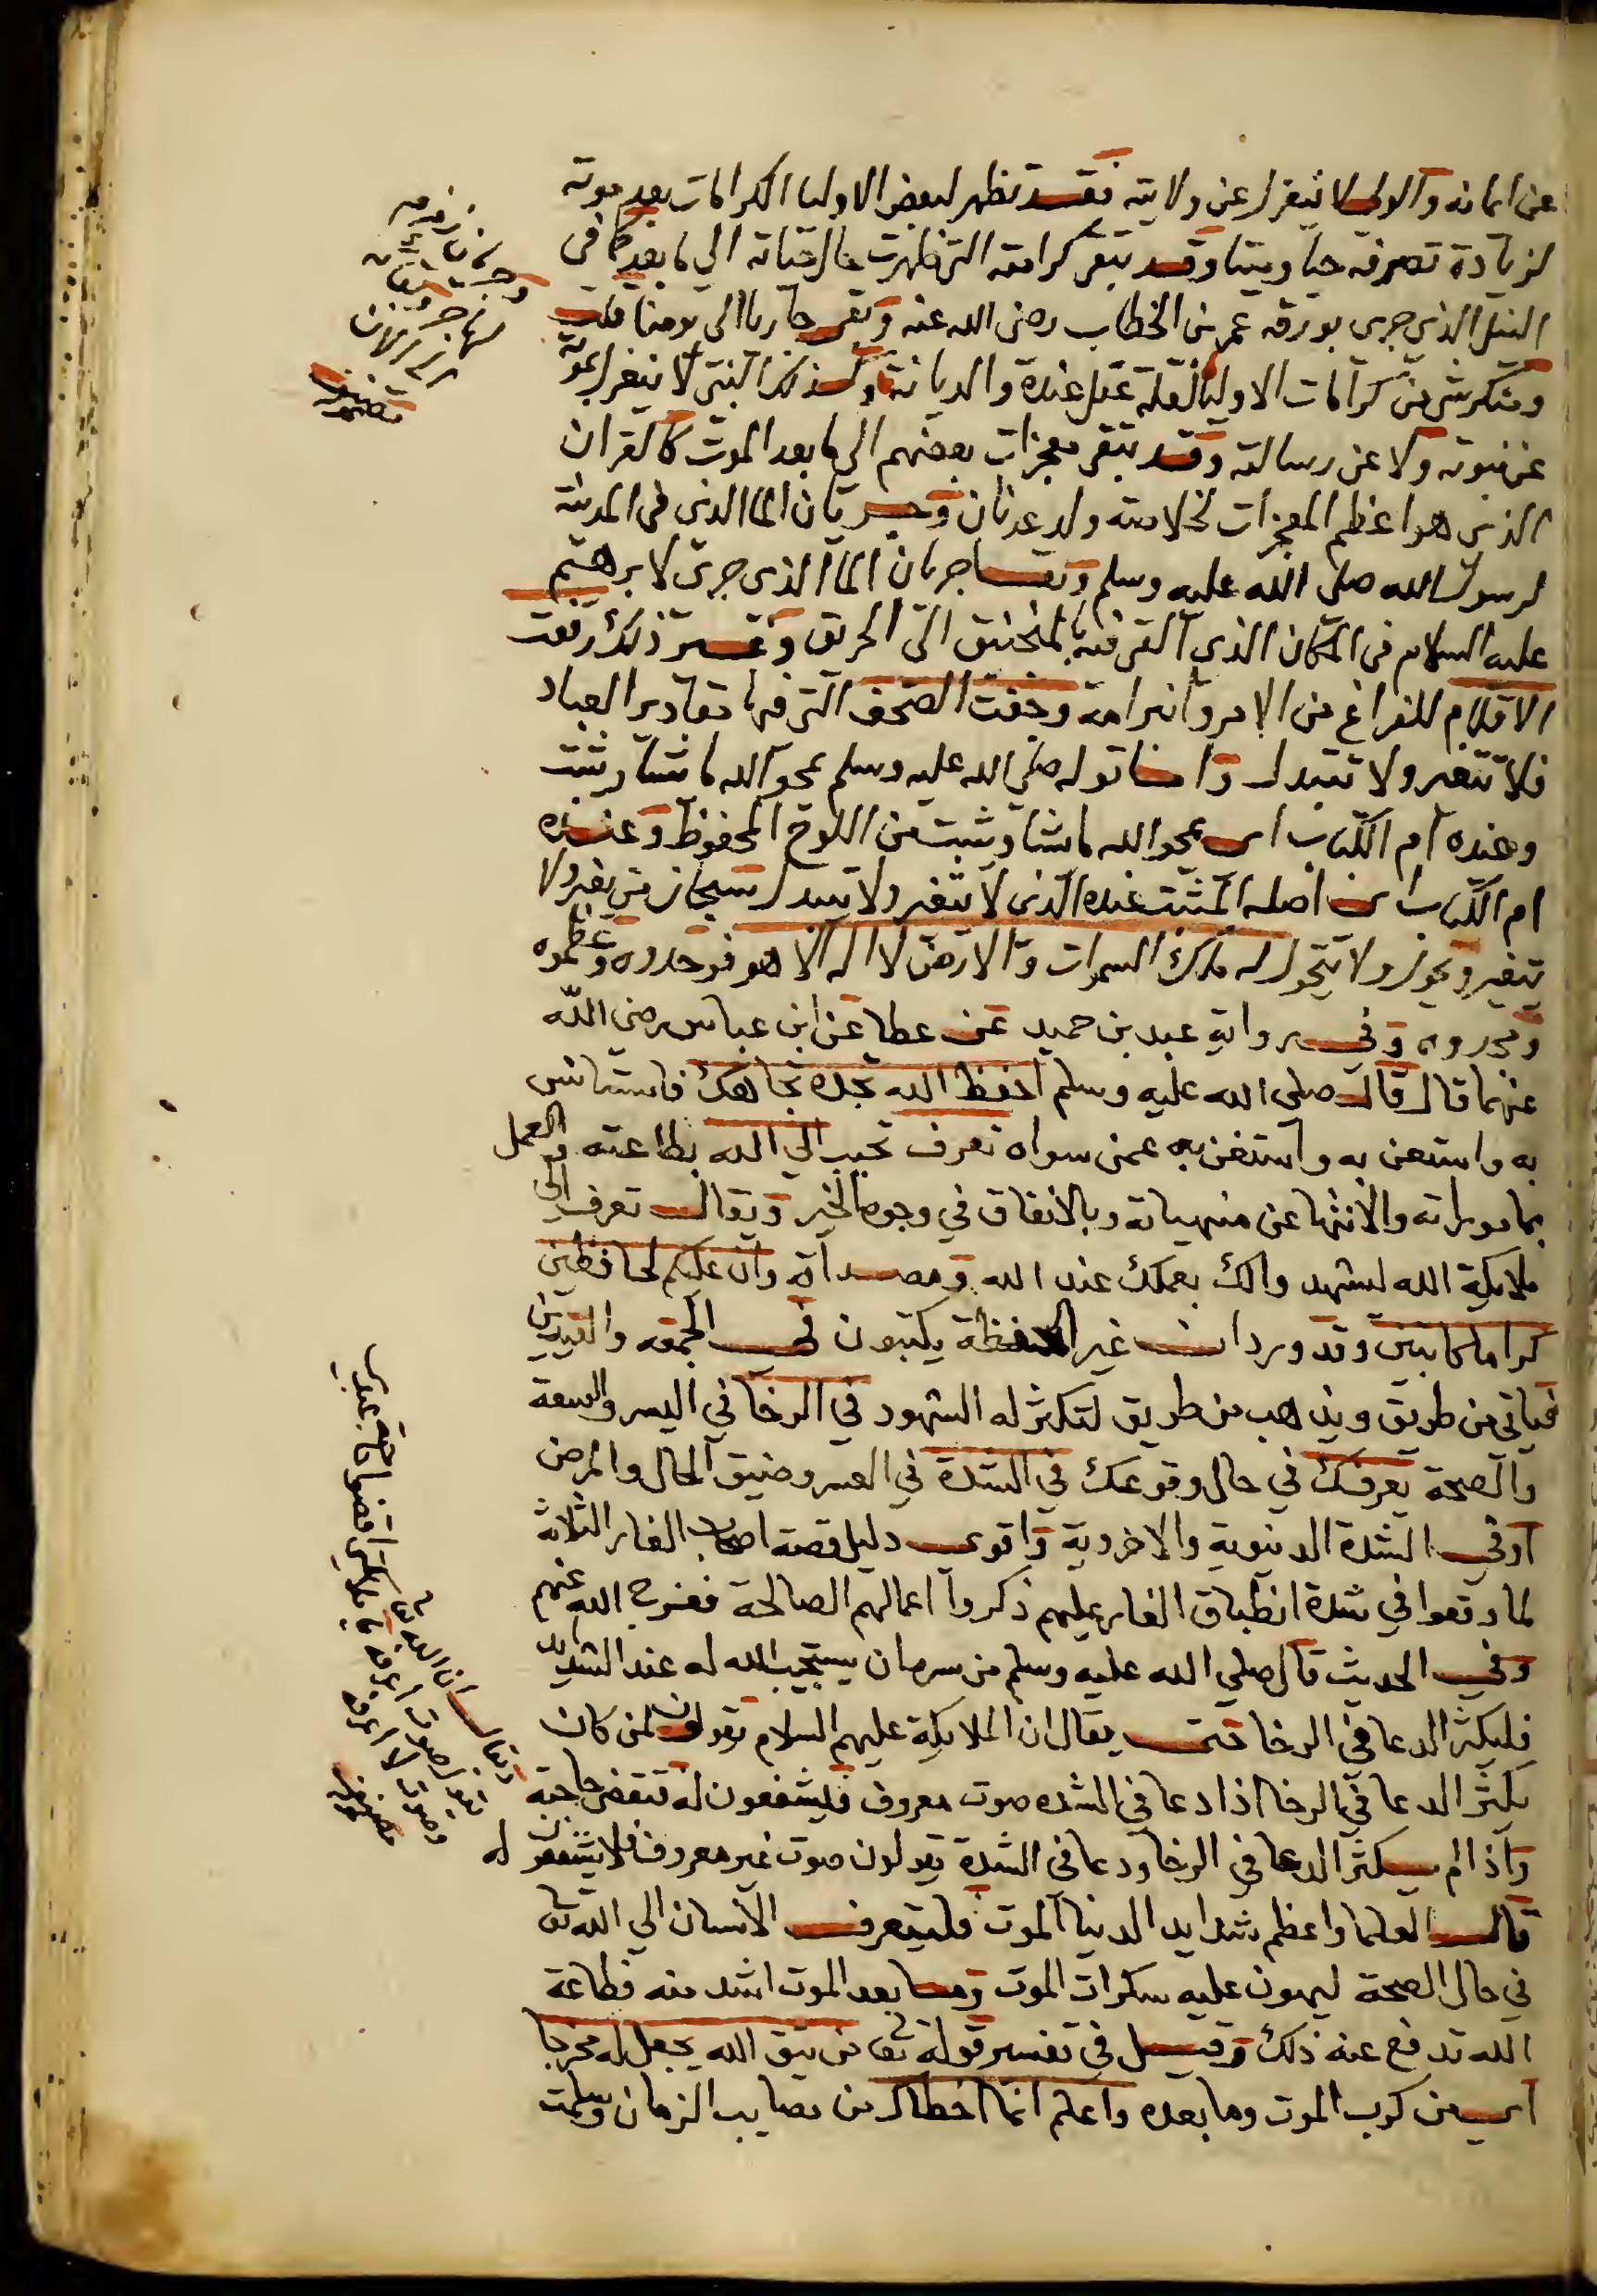 عن ايمانه والولي لا ينعزل عن ولايته فقد تظهر لبعض الاوليا الكرامات بعد موته
لزيادة تصرفه حيا وميتا وقد تبقي كرامته التي ظهرت حال حياته الي ما بعد كما في
النيل الذي جري بورقة عمر بن الخطاب رضي الله عنه وبقي جاريا الي يومنا قلت
ومنكر شي من كرامات الاوليا لقلة عقل عنده والديانة وكذلك النبي لا ينعزل بموته
عن نبوته ولا عن رسالته وقد تبقي معجزات بعضهم الي ما بعد الموت كالقران
الذي هو اعظم المعجزات لخلاصة ولد عدنان وجريان الما الذي في المدينة
لرسول الله صلي الله عليه وسلم وبقا جريان الما الذي جري لابرهيم
عليه السلام في المكان الذي القي فيه بالمنجنيق الي الحريق وغير ذلك رفعت
الاقلام للفراغ من الامر وانبرامه وجفت الصحف التي فيها مقادير العباد
فلا تتغير ولا تتبدل واما قوله صلي الله عليه وسلم يمحو الله ما يشا ويثبت
وعنده ام الكتاب اي يمحو الله ما يشا ويثبت من اللوح المحفوظ وعنده
ام الكتاب اي اصله المثبت عنده الذي لا يتغير ولا يتبدل سبحان من يغير ولا
يتغير ويحول ولا يتحول له ملك السموات والارض لا اله الا هو فوحدوه وعظموه
ومجدوه وفي رواية عبد بن حميد عن عطا عن ابن عباس رضي الله
عنهما قال قال صلي الله عليه وسلم احفظ الله تجده تجاهك فاستانس
به واستعن به واستغن به عمن سواه تعرف تحبب الي الله بطاعته والعمل
بماموراته والانتها عن منهياته وبالانفاق في وجوه الخير ويقال تعرف الي
ملايكة الله لتشهد والك بعملك عند الله ومصداقه وان عليكم لحافظين
كراما كاتبين وقد ورد ان غير الحفظة يكتبون في الجمعه والعيدين
فياتي من طريق ويذهب من طريق لتكثر له الشهود في الرخا في اليسر والسعة
والصحة يعرفك في حال وقوعك في الشدة في العسر وضيق الحال والمرض
او في الشدة الدنيوية والاخروية واقوي دليل قصة اصحاب الغار الثلاثة
لما وقعوا في شدة انطباق الغار عليهم ذكروا اعمالهم الصالحة ففرج الله عنهم
وفي الحديث قال صلي الله عليه وسلم من سره ان يستجيب الله له عند الشدايد
فليكثر الدعا في الرخا حتي يقال ان الملايكة عليهم السلام يقولون لمن كان
يكثر الدعا في الرخا اذا دعا في الشده صوت معروف فيشفعون له فتقضي حاجته
واذا لم يكثر الدعا في الرخا ودعا في الشدة يقولون صوت غير معروف فلا يشفعون له
قال العلما واعظم شدايد الدنيا الموت فليتعرف الانسان الي الله تعا
في حال الصحة ليهون عليه سكرات الموت وما بعد الموت اشد منه فطاعة
الله تدفع عنه ذلك وقيل في تفسير قوله تعا من يتق الله يجعل له مخرجا
اي من كرب الموت وما بعده واعلم انما اخطاك من مصايب الزمان وسلمت
ويقال ان الله تعا
يقول صوت اعرفه يا ملايكتي اقضوا حاجة عبدي
وصوت لا اعرفه